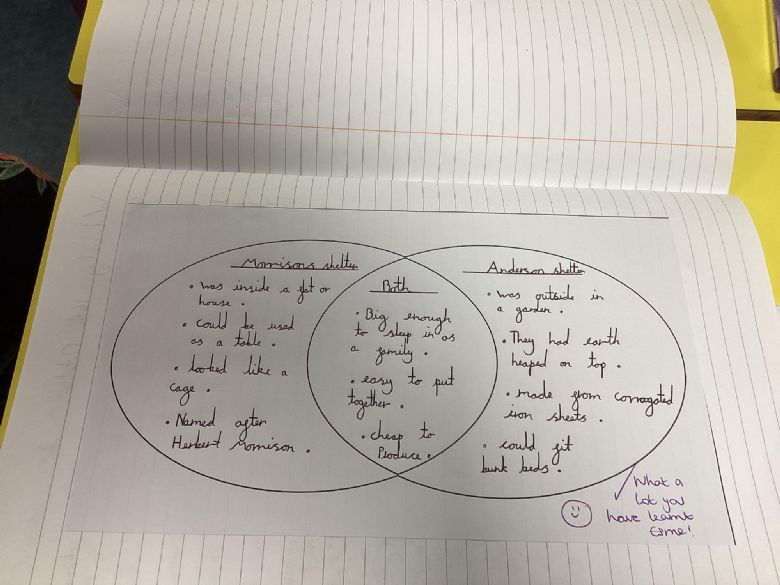 Morrisons shelter
• was inside a flat or
house.
• could be used
as a table.
• looked like a
cage.
• Named after
Herbert Morrison.
Both
• Big enough
to sleep in as
a family.
• easy to put
together.
• cheap to
Produce.
Anderson shelter
• was outside in
a garden.
• They had earth
heaped on top.
• made from corrogated
iron sheets.
• could fit
bunk beds.
What a
lot you
have learnt
Esme!